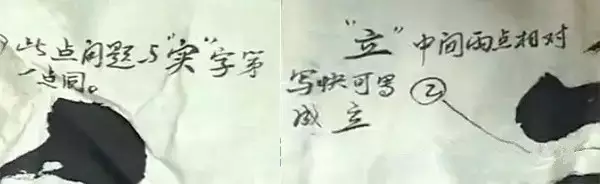 此点问题与“实”字第
一点同。
“立”中间两点相对
写快可写②
成立